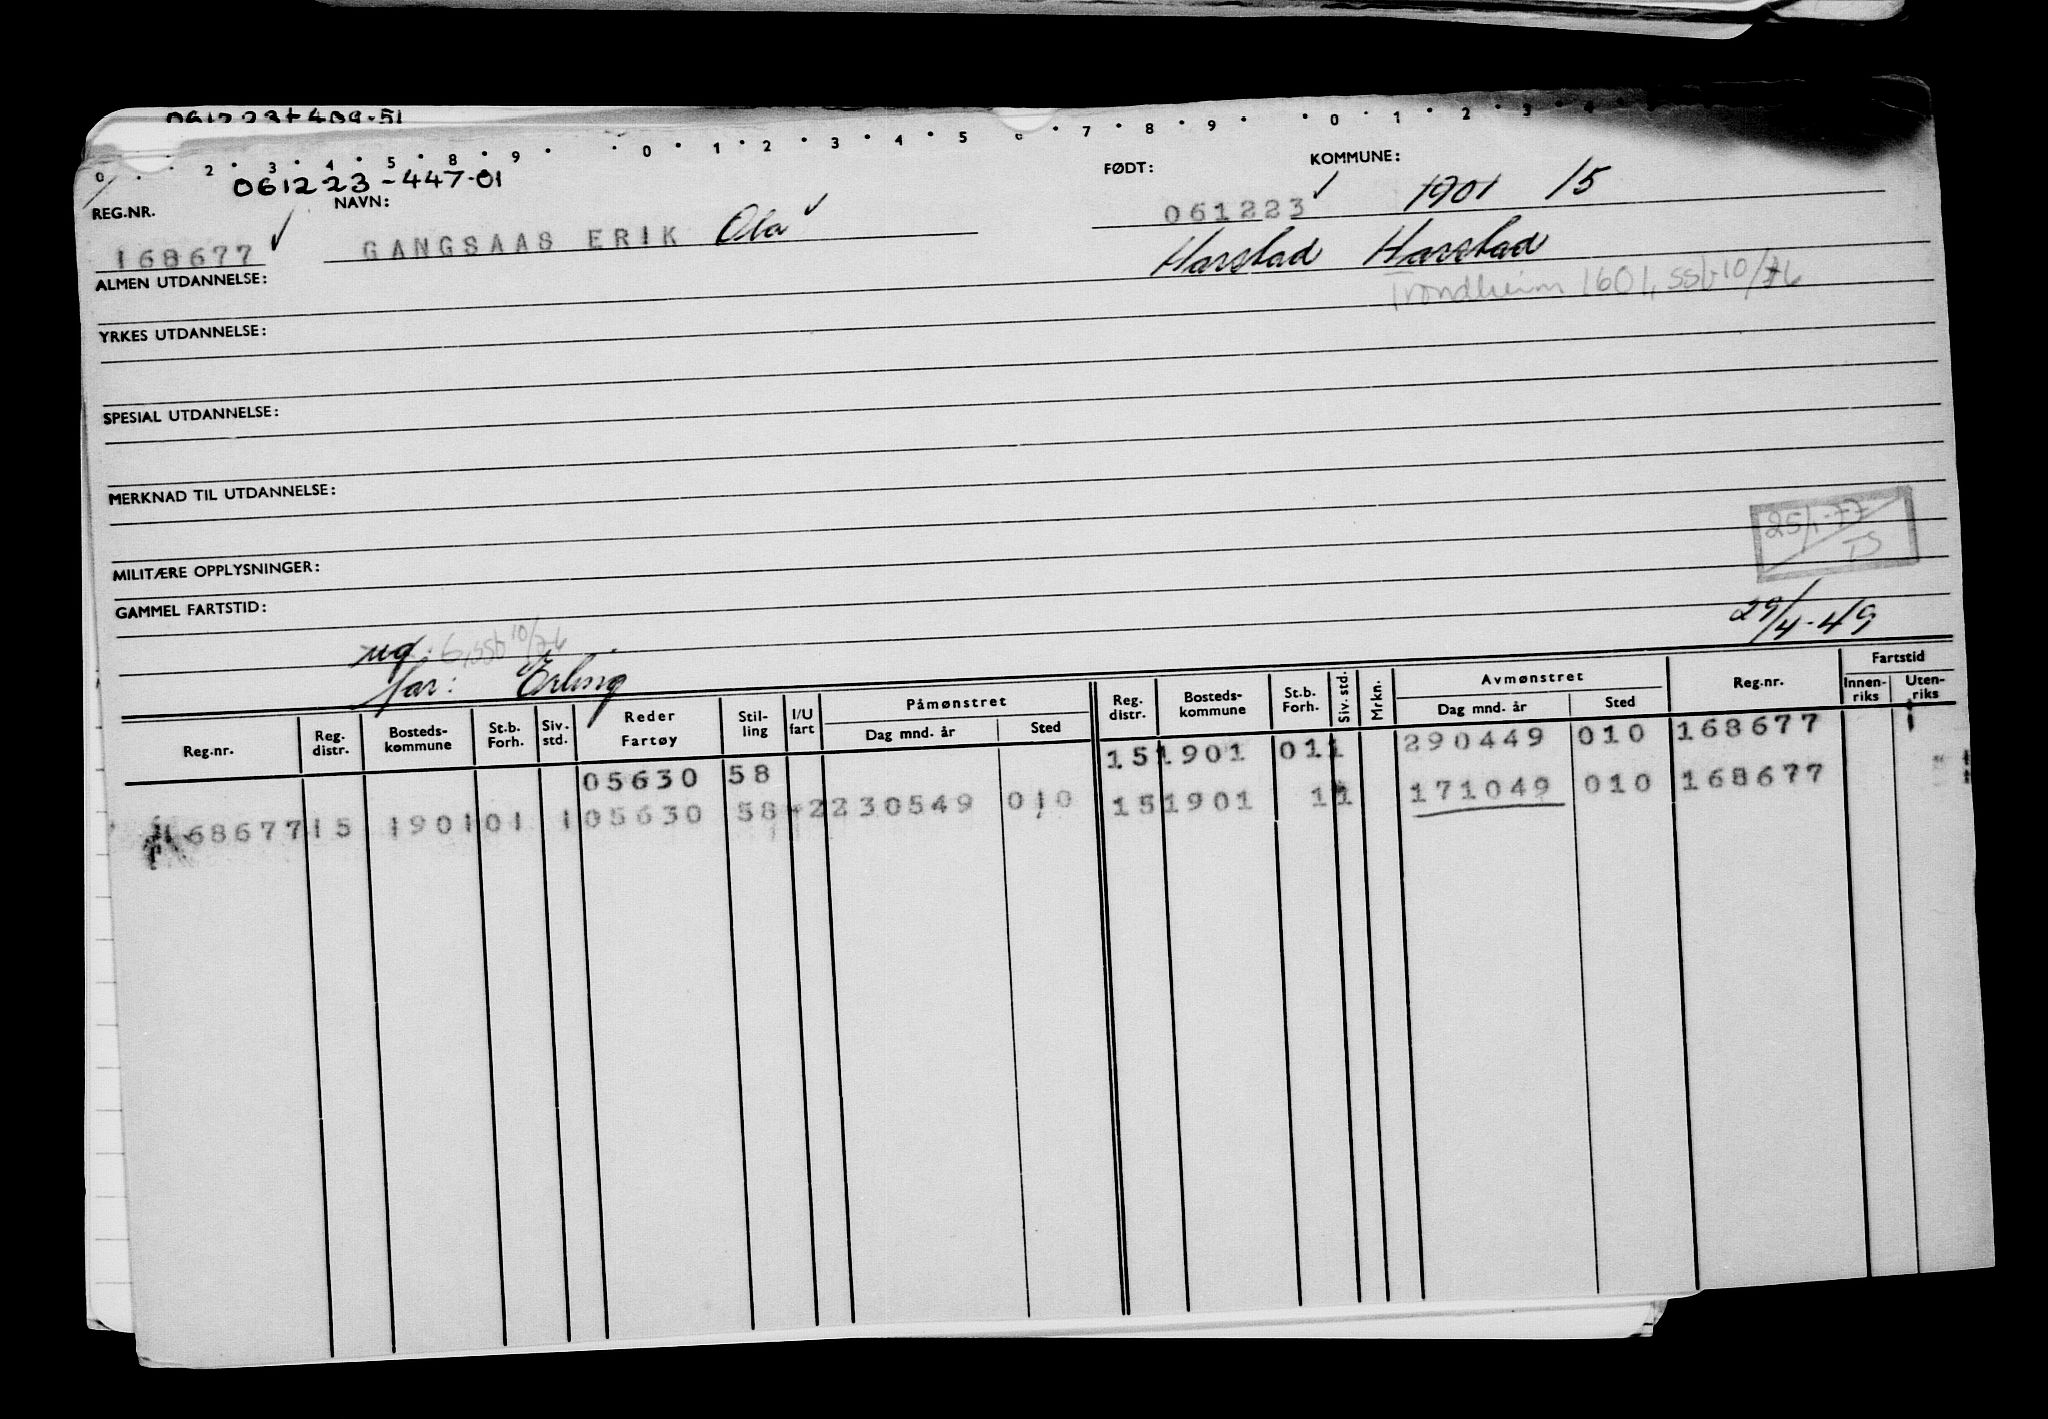 061223+409-51
0 . . 2 . 3 . 4 . 5 . 8 . 9 . . 0 . 1 . 2 . 3 . 4 . 5 . 6 . 7 . 8 . 9 . . 0 . 1 . 2 . 3 . 4
061223-447-01
REG.NR. NAVN: FØDT: KOMMUNE:
168677 ✓ GANGSAAS ERIK Ola ✓ 061223 ✓ 1901 15
Harstad Harstad
ALMEN UTDANNELSE: Trondheim 1601, ssb 10/76
YRKES UTDANNELSE:
SPESIAL UTDANNELSE:
MERKNAD TIL UTDANNELSE:
25/1-77
TS
MILITÆRE OPPLYSNINGER:
GAMMEL FARTSTID:
29/4-49
ug. G, ssb 10/76
far: Erling
Reg.nr. Reg. distr. Bosteds-kommune St.b. Forh. Siv-std. Reder Fartøy Stil-ling I/U fart Påmønstret Dag mnd. år Sted Reg. distr. Bosteds-kommune St.b. Forh. Siv. std. Mrkn. Avmønstret Dag mnd. år Sted Reg.nr. Fartstid Innen-riks Uten-riks
05630 58 15 1901 01 1 290449 010 168677
168677 15 1901 01 1 05630 58 2 230549 010 15 1901 1 1 171049 010 168677